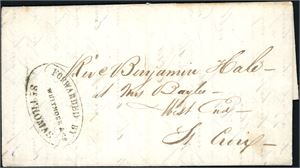 FORWARDED BY
WHITMORE & Co
ST THOMAS.
Revd Benjamin Hale –
at Mrs Bayles –
West End –
St. Croix –